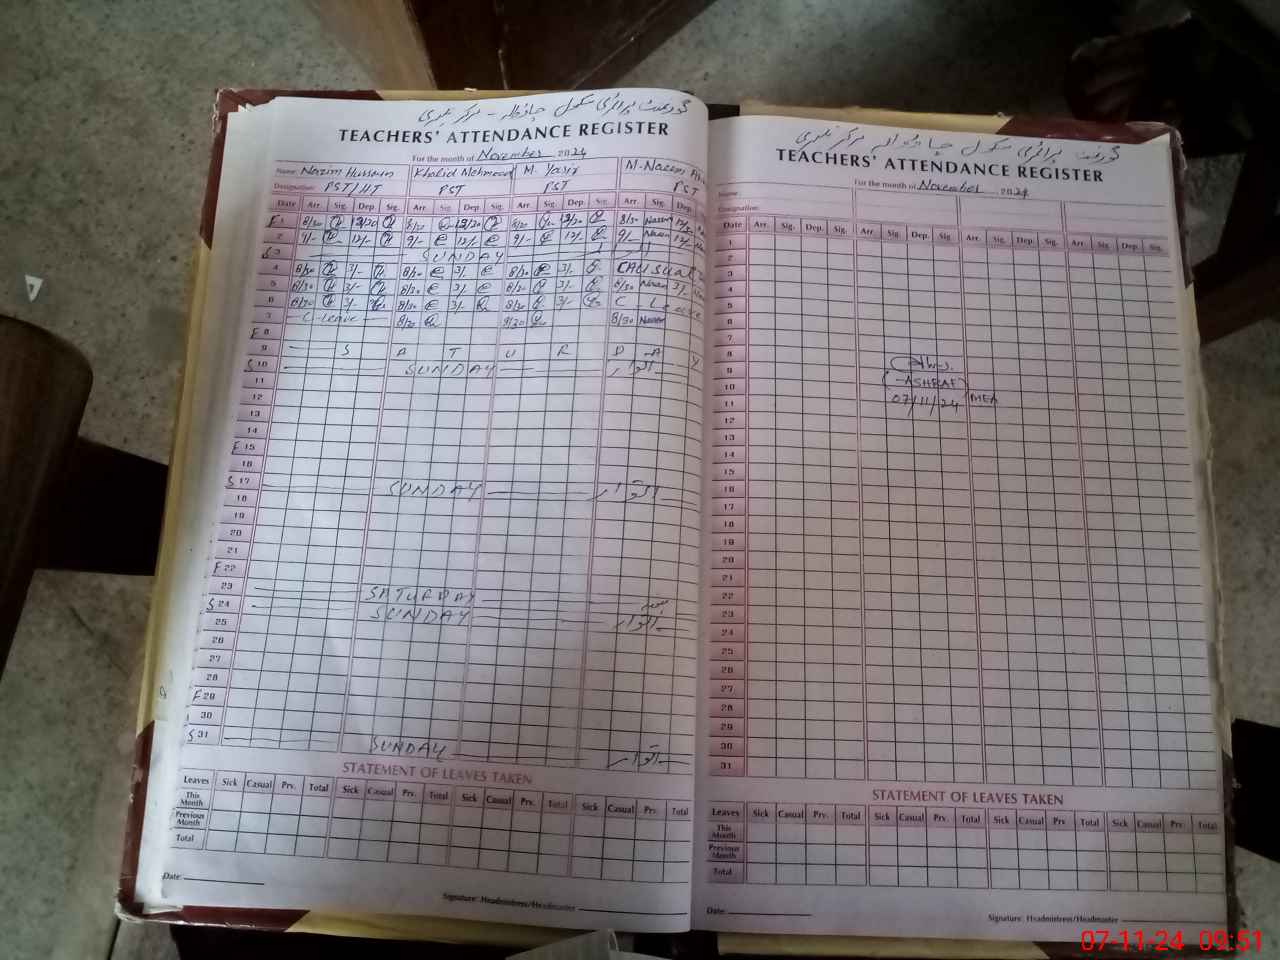 گورنمنٹ پرائمری سکول
TEACHERS' ATTENDANCE REGISTER
For the month of November 2024
Name: Nazim Hussain Khalid Mehmood M. Yasir M. Naeem
Designation: PST/HT PST PST PST
Date Arr. Sig. Dep. Sig. Arr. Sig. Dep. Sig. Arr. Sig. Dep. Sig. Arr. Sig. Dep.
F 1 8/30 12/30 8/30 12/30 8/30 12/30 8/30 Naeem 12/30
2 9/- 12/- 9/- 12/- 9/- 12/- 9/- Naeem 12/-
S 3 SUNDAY
4 8/30 3/- 8/30 3/- 8/30 3/- CAUSUAL
5 8/30 3/- 8/30 3/- 8/30 3/- 8/30 Naeem 3/-
6 8/30 3/- 8/30 3/- 8/30 3/- C - Leave
7 C - Leave 8/30 8/30 8/30 Naeem
F 8
9 S A T U R D A Y
S 10 SUNDAY اتوار
11
12
13
14
F 15
16
S 17 SUNDAY اتوار
18
19
20
21
F 22
23 SATURDAY
S 24 SUNDAY اتوار
25
26
27
28
F 29
30
S 31 SUNDAY اتوار
STATEMENT OF LEAVES TAKEN
Leaves Sick Casual Prv. Total Sick Casual Prv. Total Sick Casual Prv. Total Sick Casual Prv. Total
This Month
Previous Month
Total
Date:
Signature: Headmistress/Headmaster
گورنمنٹ پرائمری سکول
TEACHERS' ATTENDANCE REGISTER
For the month of November 2024
Name:
Designation:
Date Arr. Sig. Dep. Sig. Arr. Sig. Dep. Sig. Arr. Sig. Dep. Sig. Arr. Sig. Dep. Sig.
1
2
3
4
5
6
7
8
9
10 (ASHRAF)
11 07/11/24 MEA
12
13
14
15
16
17
18
19
20
21
22
23
24
25
26
27
28
29
30
31
STATEMENT OF LEAVES TAKEN
Leaves Sick Casual Prv. Total Sick Casual Prv. Total Sick Casual Prv. Total Sick Casual Prv. Total
This Month
Previous Month
Total
Date:
Signature: Headmistress/Headmaster
07-11-24 09:51